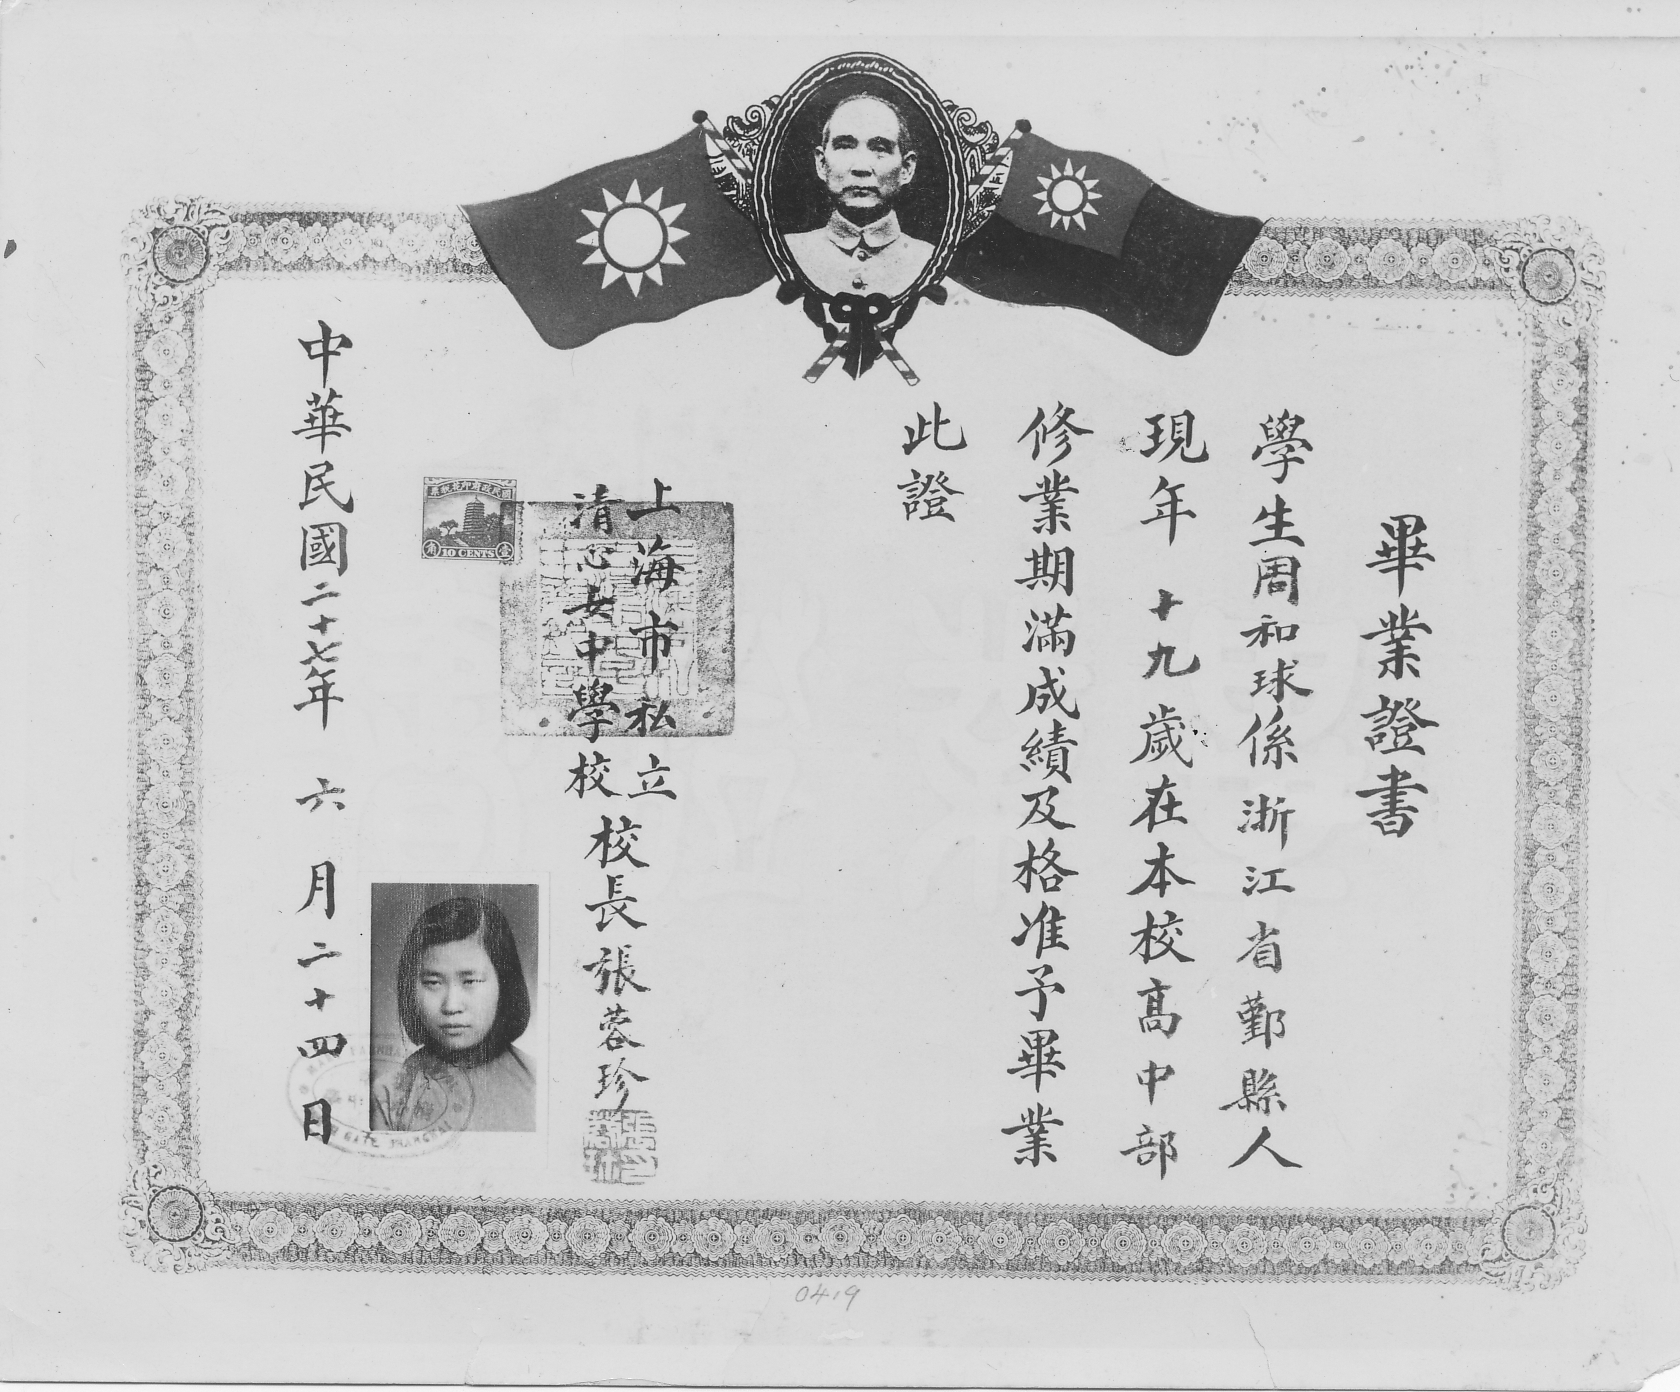 畢業證書
學生周和球係浙江省鄞縣人
現年十九歲在本校高中部
修業期滿成績及格准予畢業
此證
上海市私立
清心女中學校
校長張蓉珍
國民政府印花稅票
角 10 CENTS 壹
中華民國二十七年六月二十四日
0419